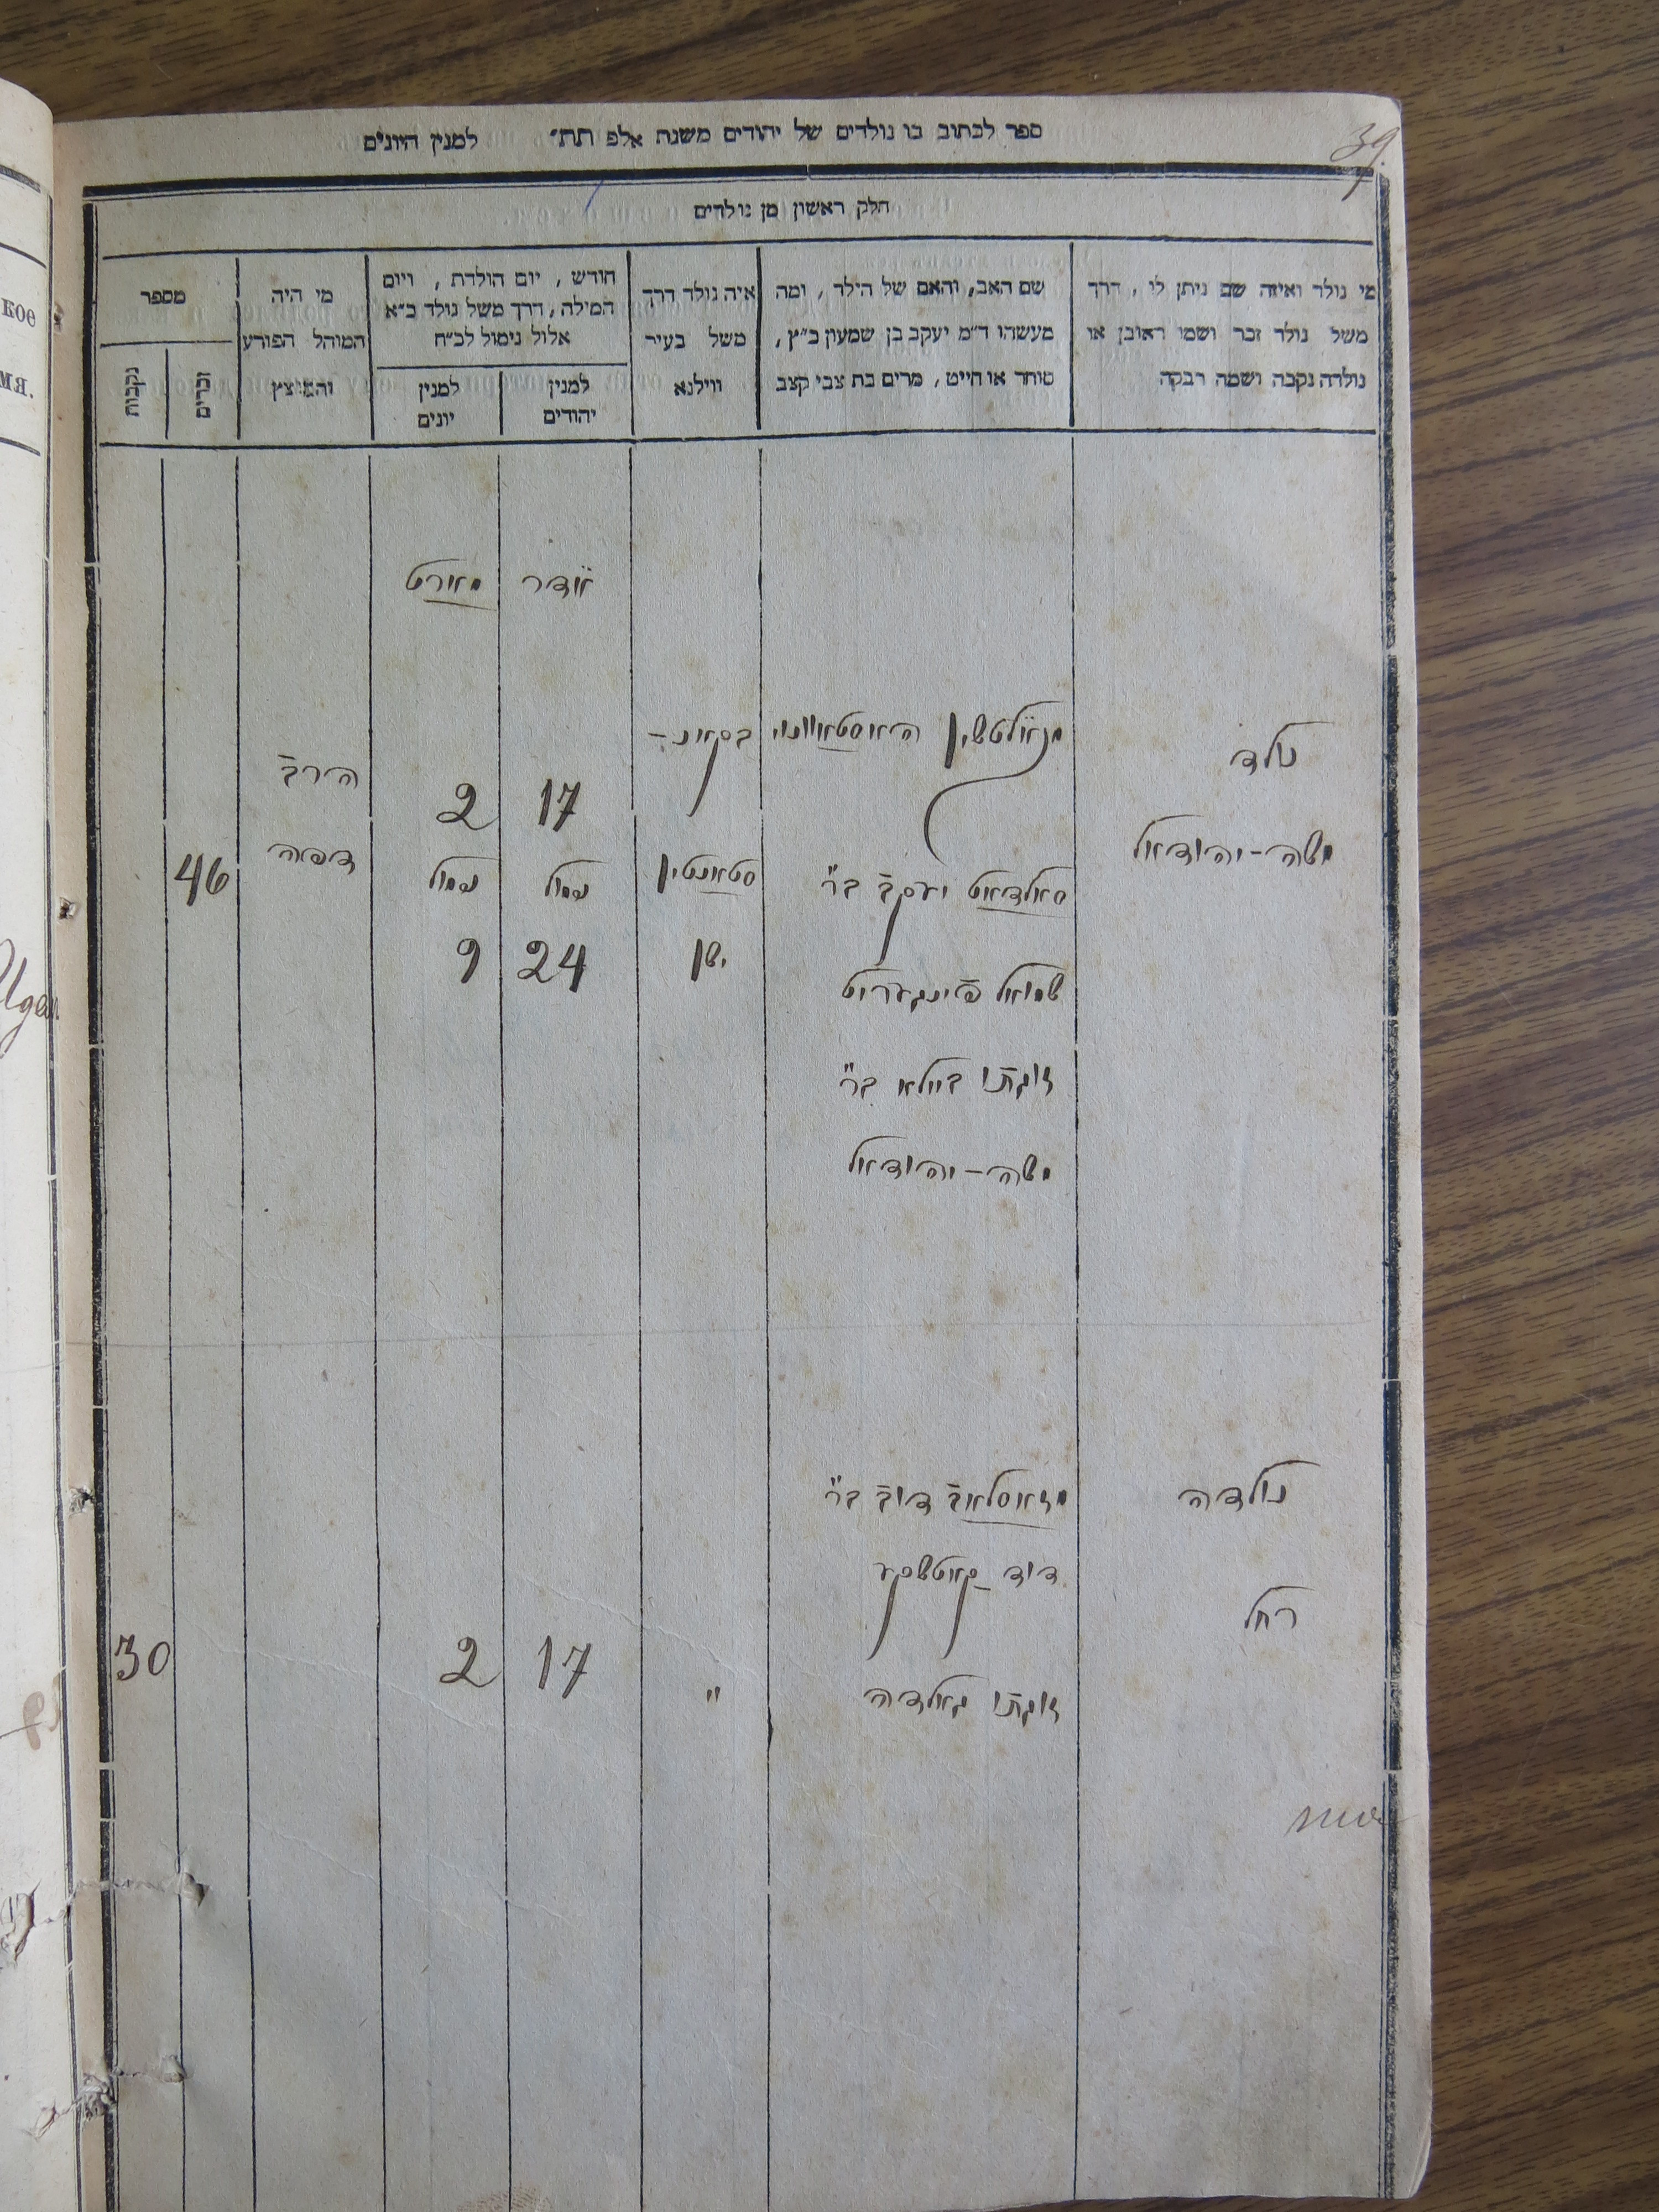 39.
ספר לכתוב בו נולדים של יהודים משנת אלפ תת״ למנין היונים
חלק ראשון מן נולדים
מי נולד ואיזה שם ניתן לו, דרך
משל נולד זכר ושמו ראובן או
נולדה נקבה ושמה רבקה
שם האב, והאם של הילד, ומה
מעשהו ד״מ יעקב בן שמעון כ״ץ,
סוחר או חייט, מרים בת צבי קצב
איה נולד דרך
משל בעיר
ווילנא
חודש, יום הולדת, ויום
המילה, דרך משל נולד כ״א
אלול נימול לכ״ח
למנין
יהודים
למנין
יונים
מי היה
המוהל הפורע
והמוצץ
מספר
זכרים
נקבות
אדר
מארט
נולד
משה-יהודאל
סאלדאט יעקב בר״
שמואל
זוגתו ביילא בר״
משה-יהודאל
בקאנ-
סטאנטין
ישן
17
נמול
24
2
נמול
9
הרב
דפה
46
נולדה
רחל
דוב בר״
דוד
זוגתו גאלדה
"
17
2
30